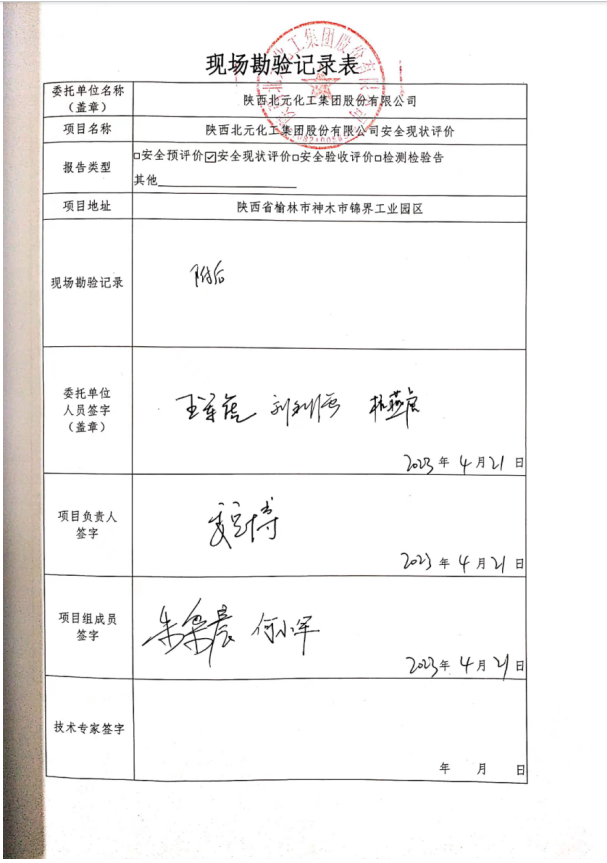 现场勘验记录表
委托单位名称
（盖章）
陕西北元化工集团股份有限公司
项目名称
陕西北元化工集团股份有限公司安全现状评价
报告类型
□安全预评价☑安全现状评价□安全验收评价□检测检验告
其他
项目地址
陕西省榆林市神木市锦界工业园区
现场勘验记录
附后
委托单位
人员签字
（盖章）
刘利强
2023年4月21日
项目负责人
签字
2023年4月21日
项目组成员
签字
何小军
2023年4月21日
技术专家签字
年 月 日